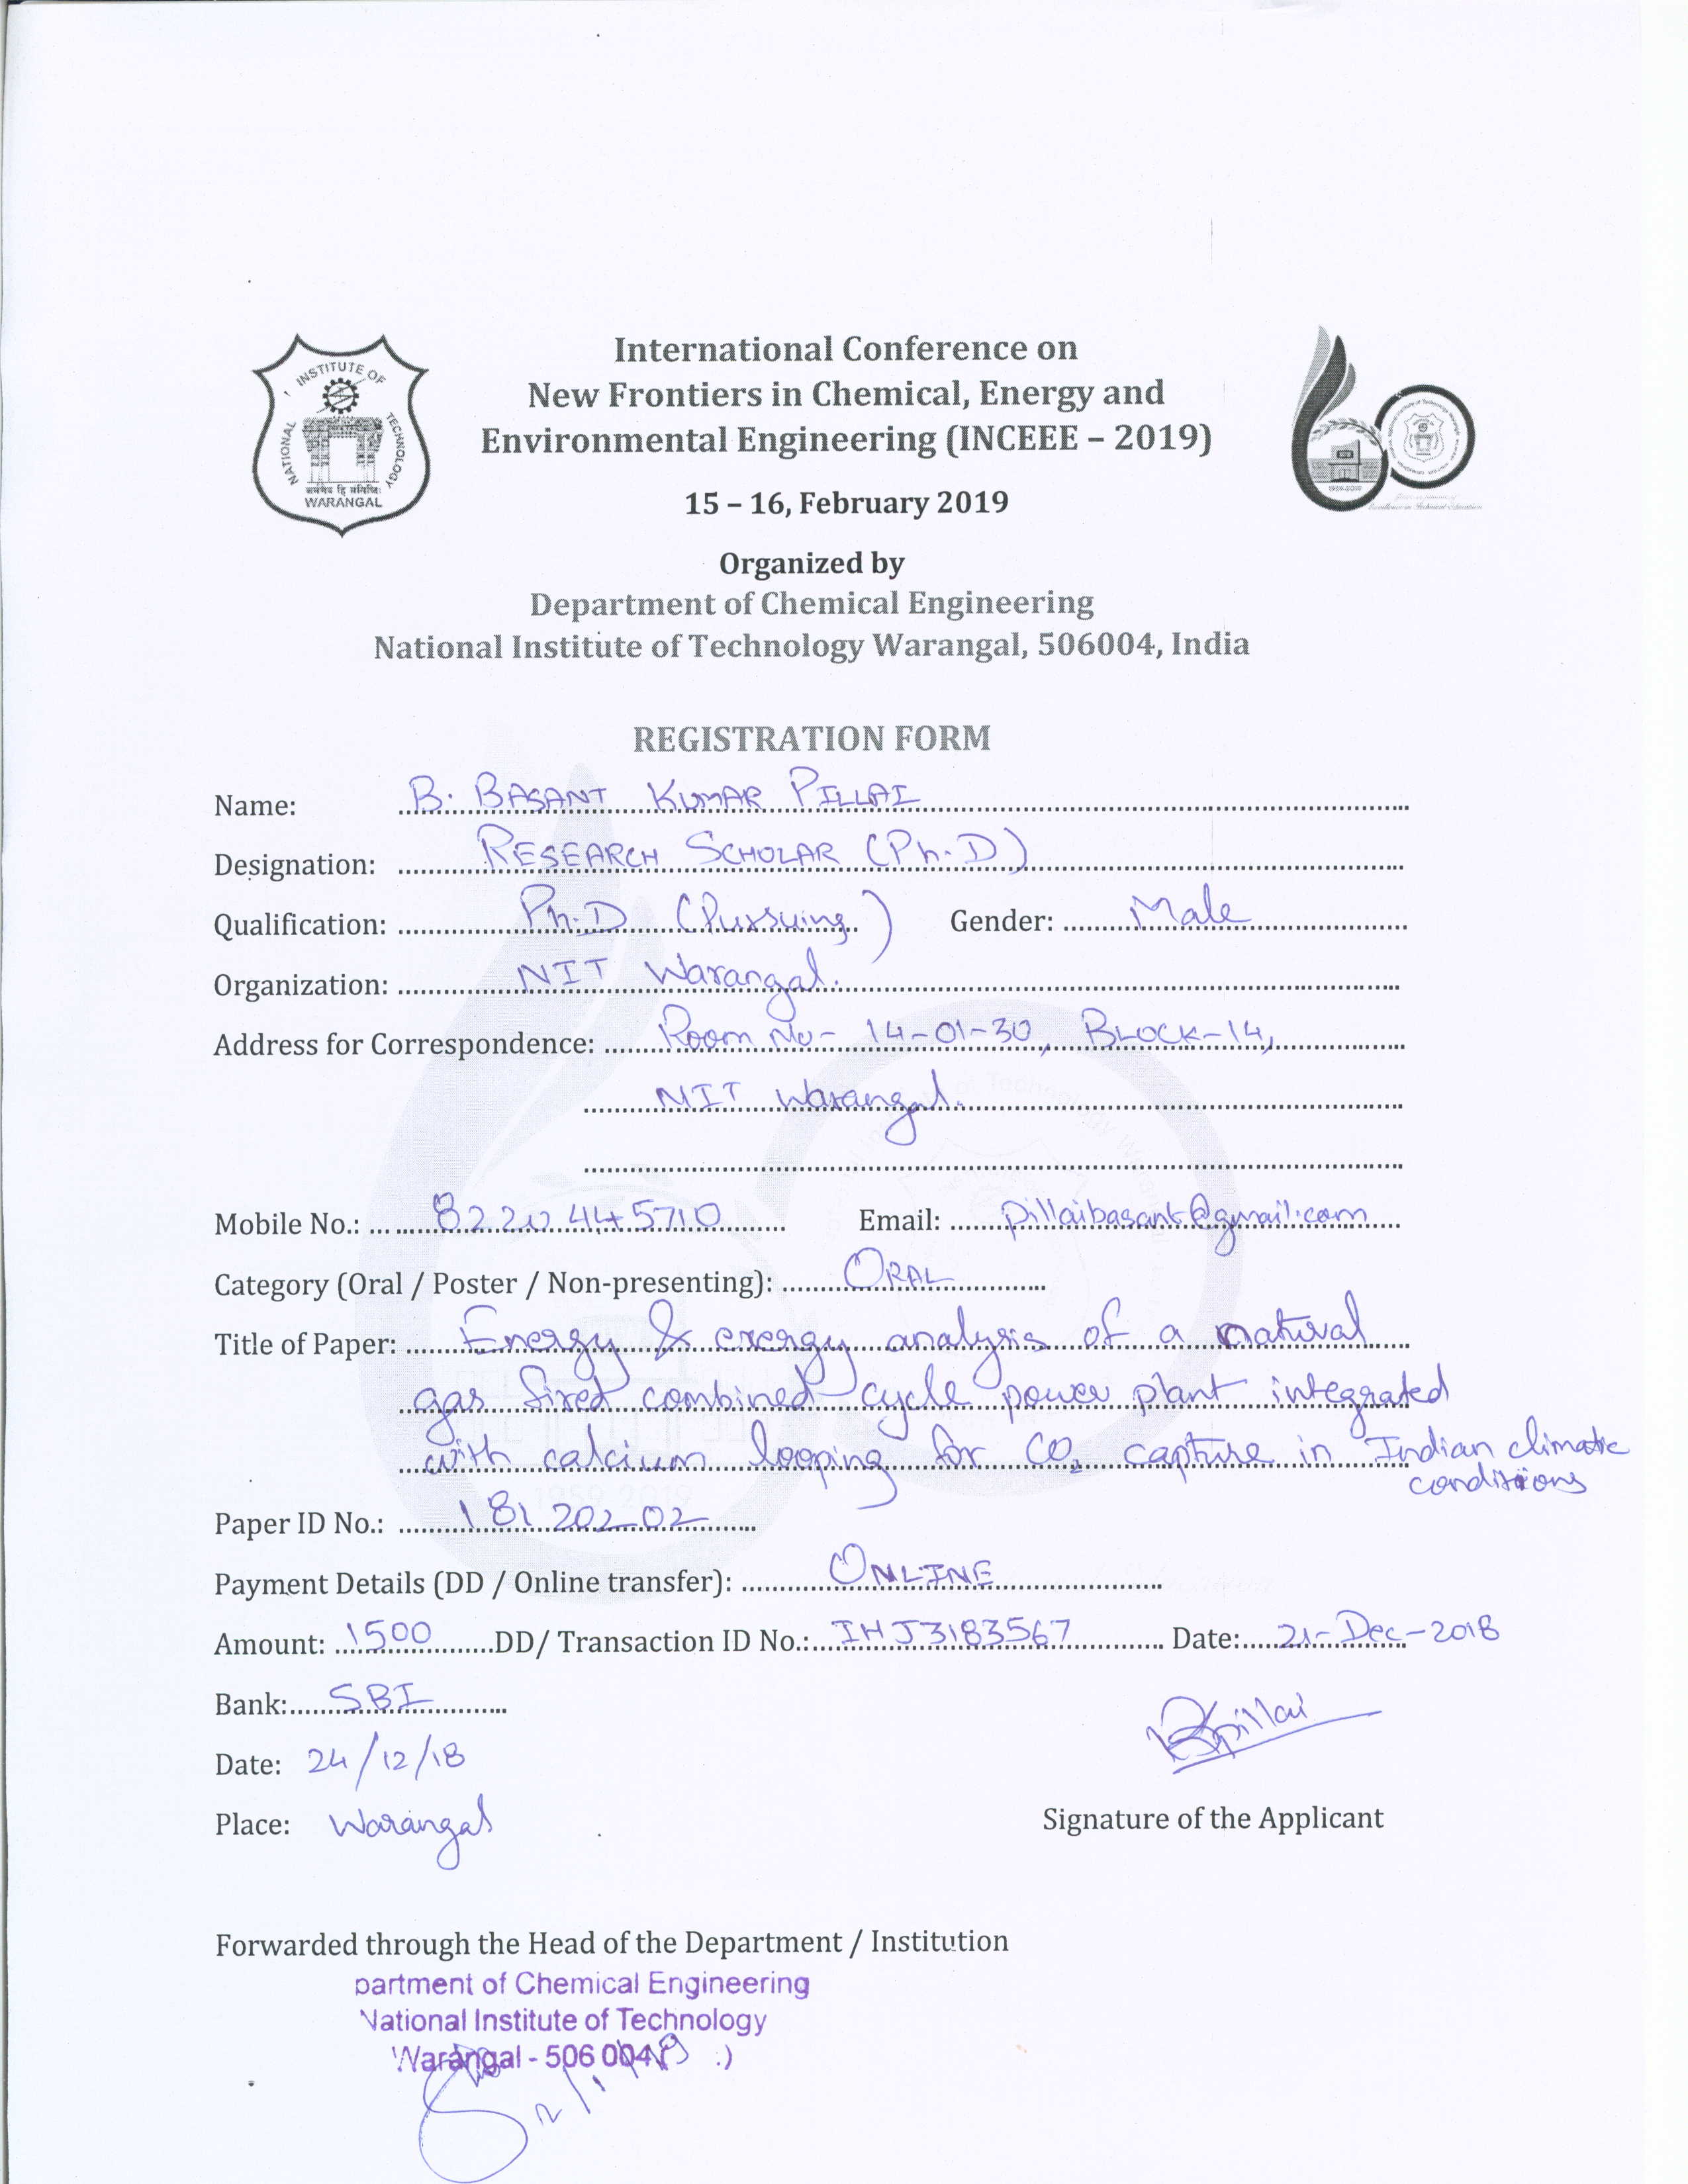 NATIONAL INSTITUTE OF TECHNOLOGY
WARANGAL
1959-2019
International Conference on
New Frontiers in Chemical, Energy and
Environmental Engineering (INCEEE – 2019)
15 – 16, February 2019
Organized by
Department of Chemical Engineering
National Institute of Technology Warangal, 506004, India
REGISTRATION FORM
Name: B. BASANT KUMAR PILLAI
Designation: RESEARCH SCHOLAR (Ph.D)
Qualification: Ph.D (Pursuing) Gender: Male
Organization: NIT Warangal.
Address for Correspondence: Room No- 14-01-30, BLOCK-14,
NIT Warangal.
Mobile No.: 8220445710 Email: pillaibasant@gmail.com
Category (Oral / Poster / Non-presenting): ORAL
Title of Paper: Energy & exergy analysis of a natural
gas fired combined cycle power plant integrated
with calcium looping for CO2 capture in Indian climatic
conditions
Paper ID No.: 18120202
Payment Details (DD / Online transfer): ONLINE
Amount: 1500 DD/ Transaction ID No.: IHJ3183567 Date: 21-Dec-2018
Bank: SBI
Date: 24/12/18
Place: Warangal
Bpillai
Signature of the Applicant
Forwarded through the Head of the Department / Institution
partment of Chemical Engineering
National Institute of Technology
Warangal - 506 004